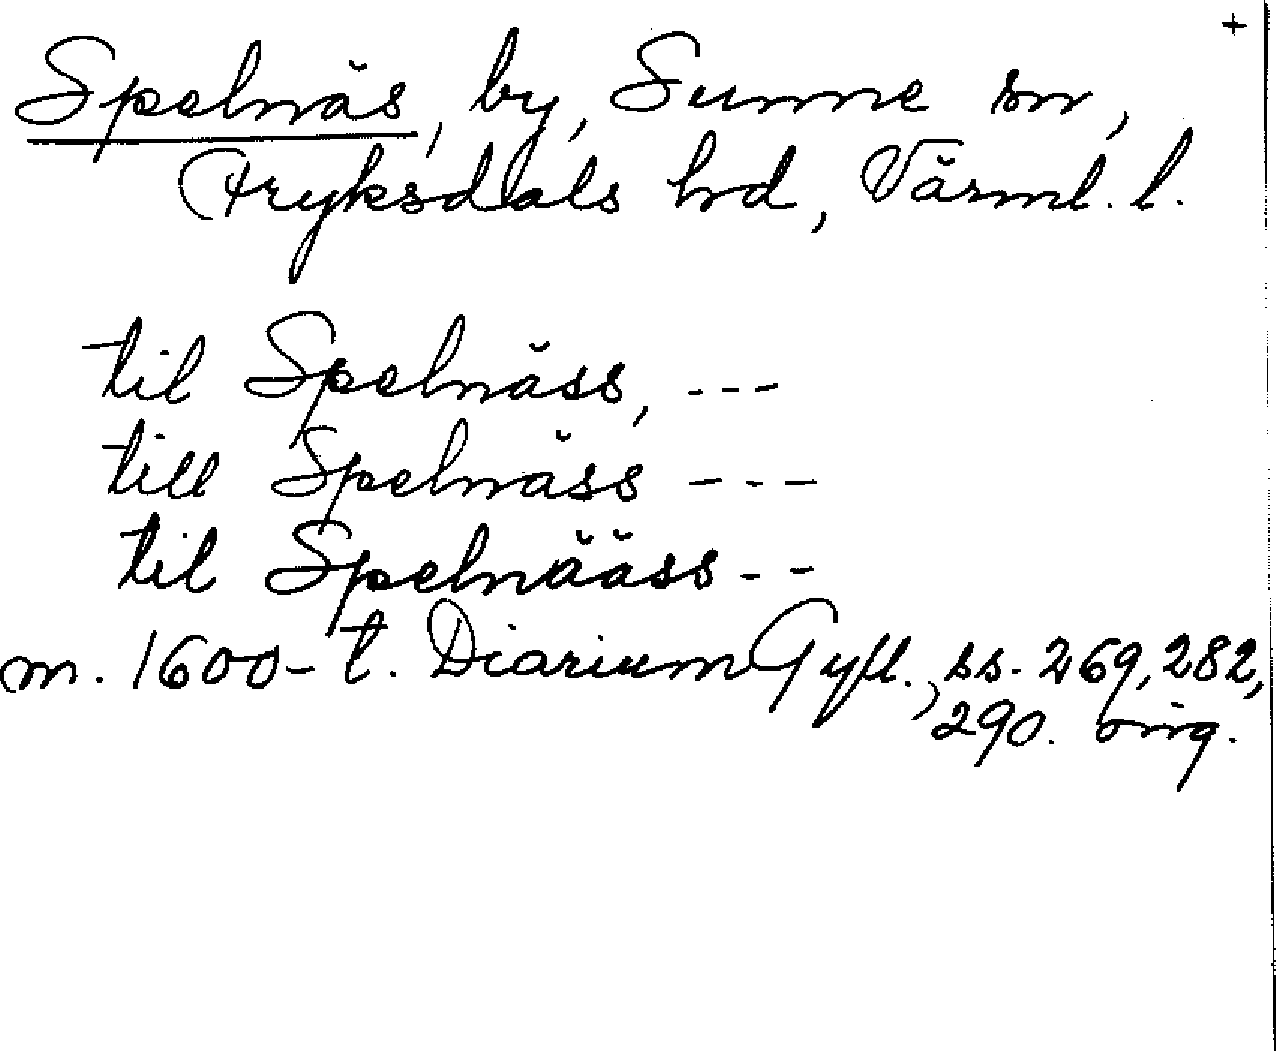 +
Spelnäs, by, Sunne sn,
Fryksdals hd, Värml. l.
til Spelnäss, ---
till Spelnäss ---
til Spelnääss --
m. 1600-t. Diarium Gyll., ss. 269, 282,
290. orig.